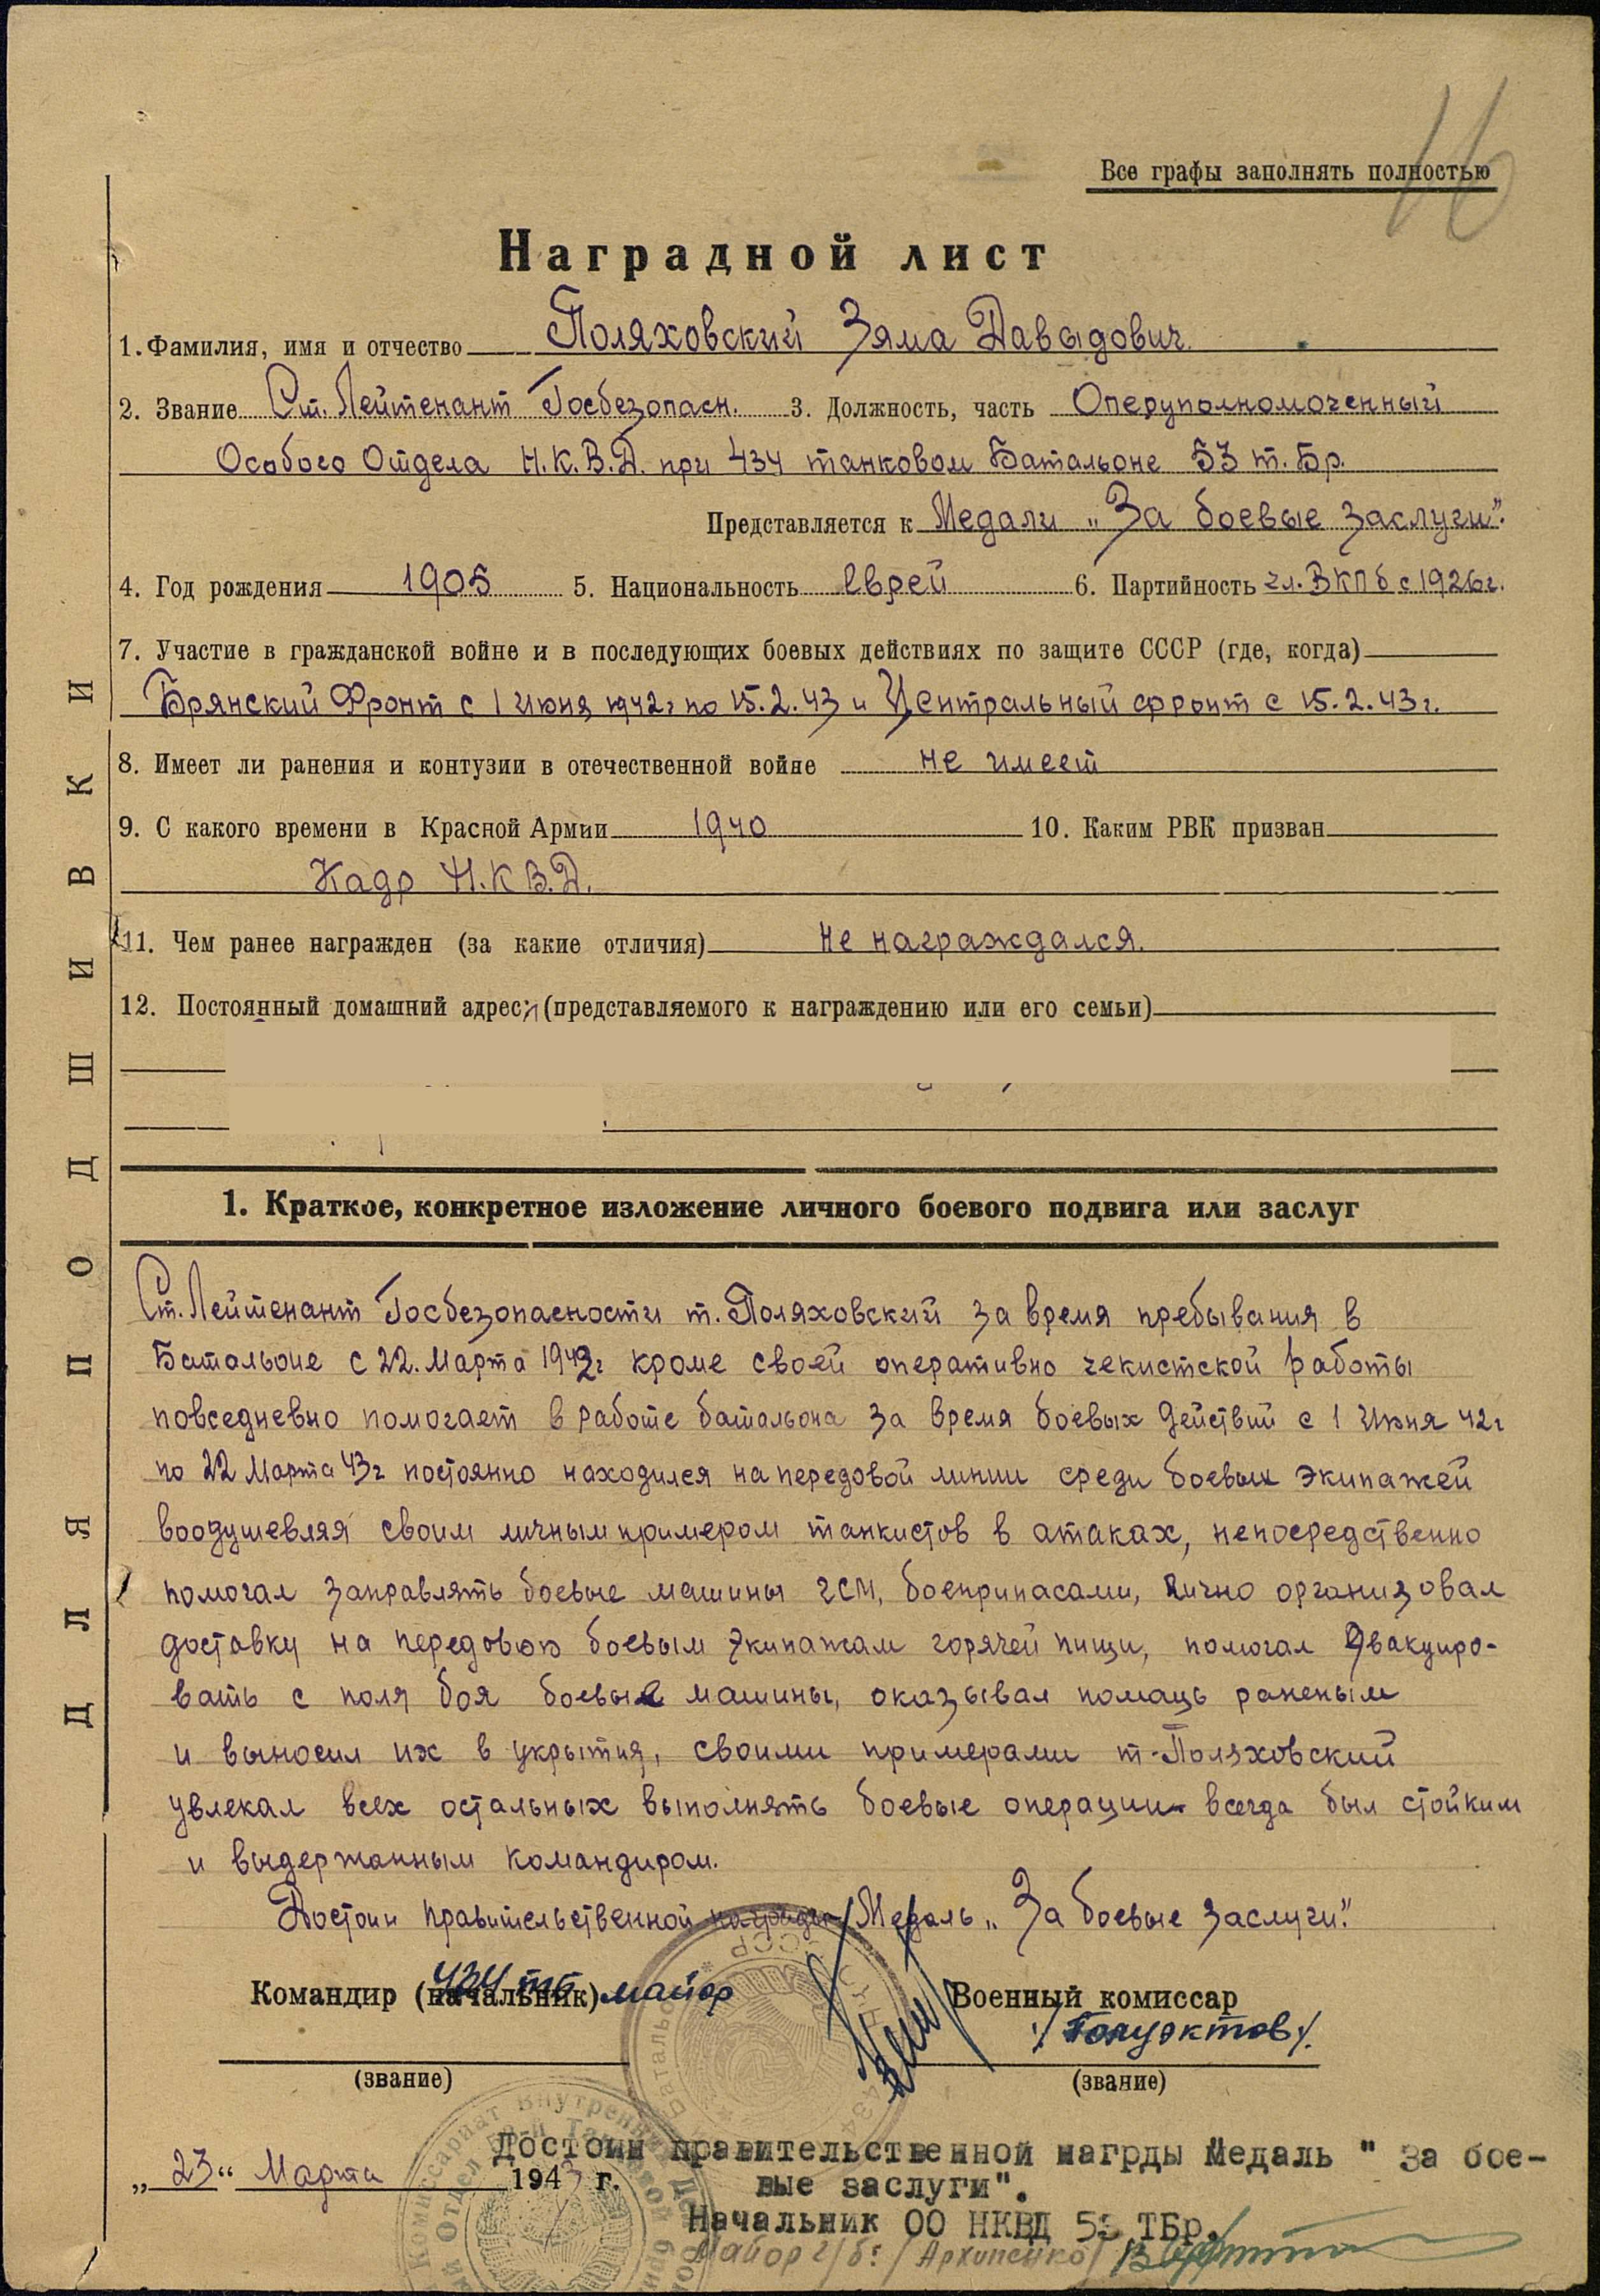 16
Все графы заполнять полностью
Наградной лист
1. Фамилия, имя и отчество Поляховский Зяма Давыдович
2. Звание Ст. Лейтенант Госбезопасн. 3. Должность, часть Оперуполномоченный
Особого Отдела Н.К.В.Д. при 434 танковом Батальоне 53 т. Бр.
Представляется к Медали „За боевые заслуги".
4. Год рождения 1905 5. Национальность еврей 6. Партийность чл. ВКПб с 1926г.
7. Участие в гражданской войне и в последующих боевых действиях по защите СССР (где, когда)
Брянский Фронт с 1 Июня 1942г по 15.2.43 и Центральный фронт с 15.2.43г.
8. Имеет ли ранения и контузии в отечественной войне не имеет
9. С какого времени в Красной Армии 1940 10. Каким РВК призван
Кадр Н.К.В.Д.
11. Чем ранее награжден (за какие отличия) не награждался.
12. Постоянный домашний адрес: (представляемого к награждению или его семьи)
1. Краткое, конкретное изложение личного боевого подвига или заслуг
Ст. Лейтенант Госбезопасности т. Поляховский за время пребывания в
Батальоне с 22. Марта 1942г кроме своей оперативно чекистской работы
повседневно помогает в работе батальона за время боевых действий с 1 Июня 42г
по 22 Марта 43г постоянно находился на передовой линии среди боевых экипажей
воодушевляя своим личным примером танкистов в атаках, непосредственно
помогал заправлять боевые машины ГСМ, боеприпасами, лично организовал
доставку на передовую боевым экипажам горячей пищи, помогал эвакуиро-
вать с поля боя боевые машины, оказывал помощь раненым
и выносил их в укрытия, своими примерами т. Поляховский
увлекал всех остальных выполнять боевые операции всегда был стойким
и выдержанным командиром.
Достоин правительственной награды Медаль „За боевые заслуги".
Командир (начальник) 434 тб майор Военный комиссар
(звание) (звание)
Достоин правительственной нагрды Медаль " За бое-
„23" Марта 1943 г. вые заслуги".
Начальник ОО НКВД 53 ТБр.
Майор г/б: /Архипенко/
ДЛЯ ПОДШИВКИ